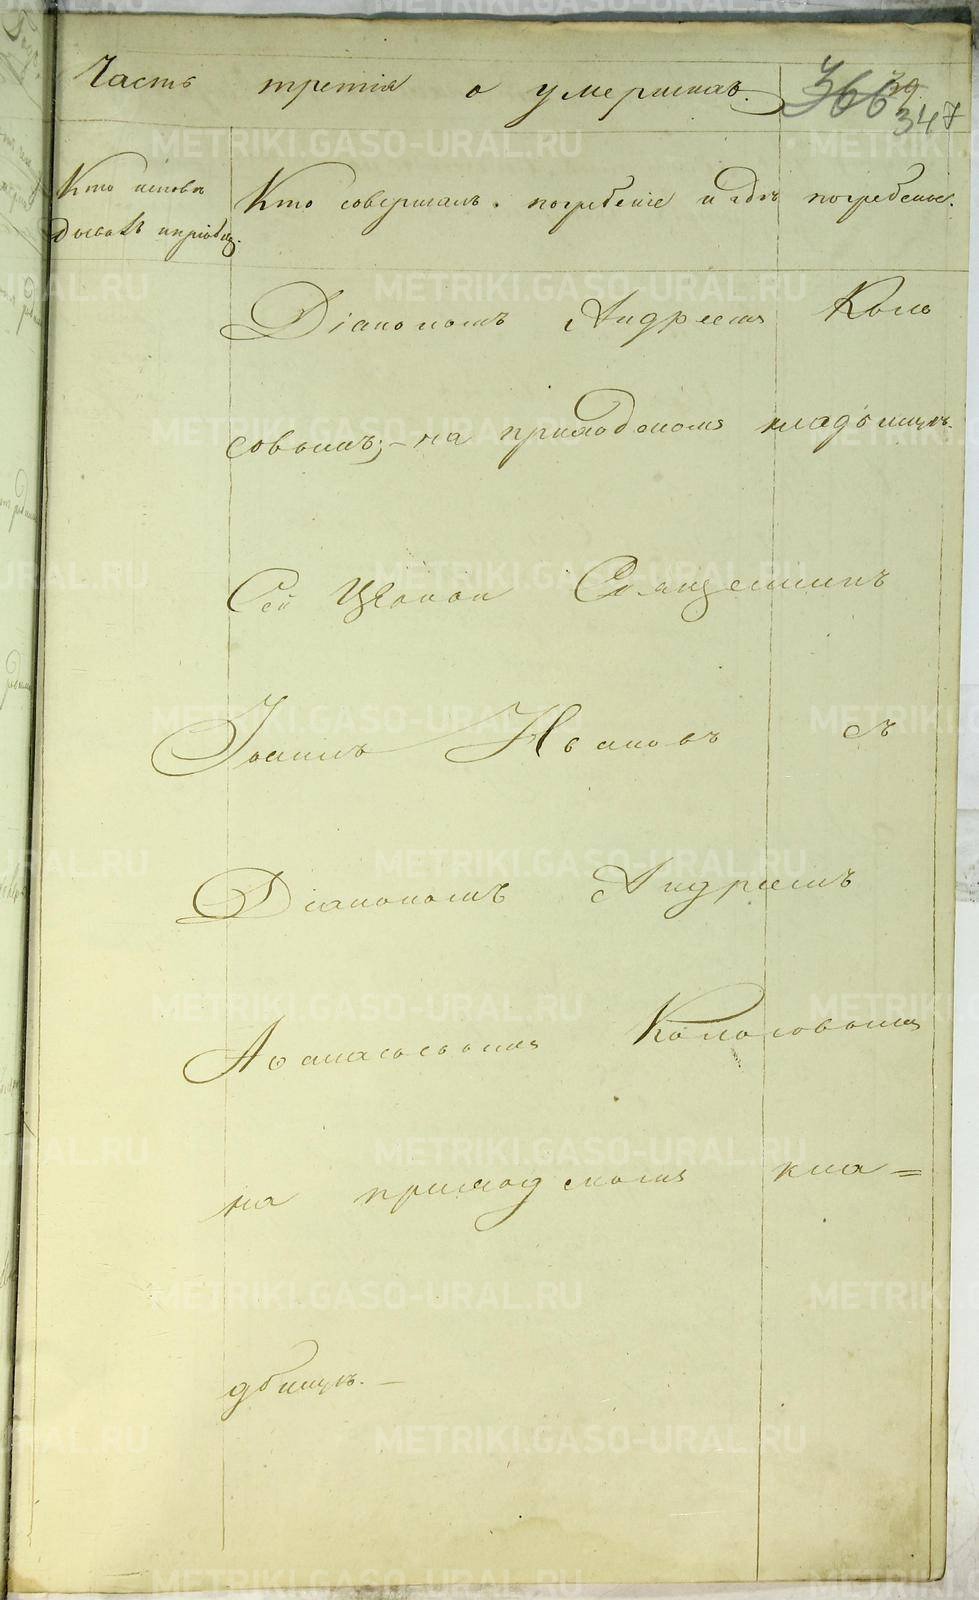 Часть третія о умершихъ.
366 39
347
Кто исповѣ
дывалъ и пріобщ.
Кто совершалъ погребеніе и гдѣ погребены.
Діакономъ Андреемъ Коло
совымъ; - на приходскомъ кладбищѣ.
Сей Церкви Священникъ
Іоаннъ Ивановъ съ
Діакономъ Андреемъ
Аѳанасьевымъ Колосовымъ
на приходскомъ кла=
дбищѣ. —
METRIKI.GASO-URAL.RU